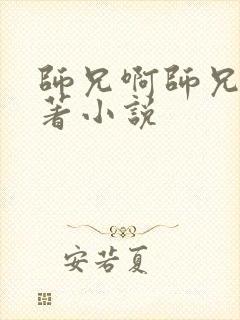 師兄啊師兄
著小説
安若夏